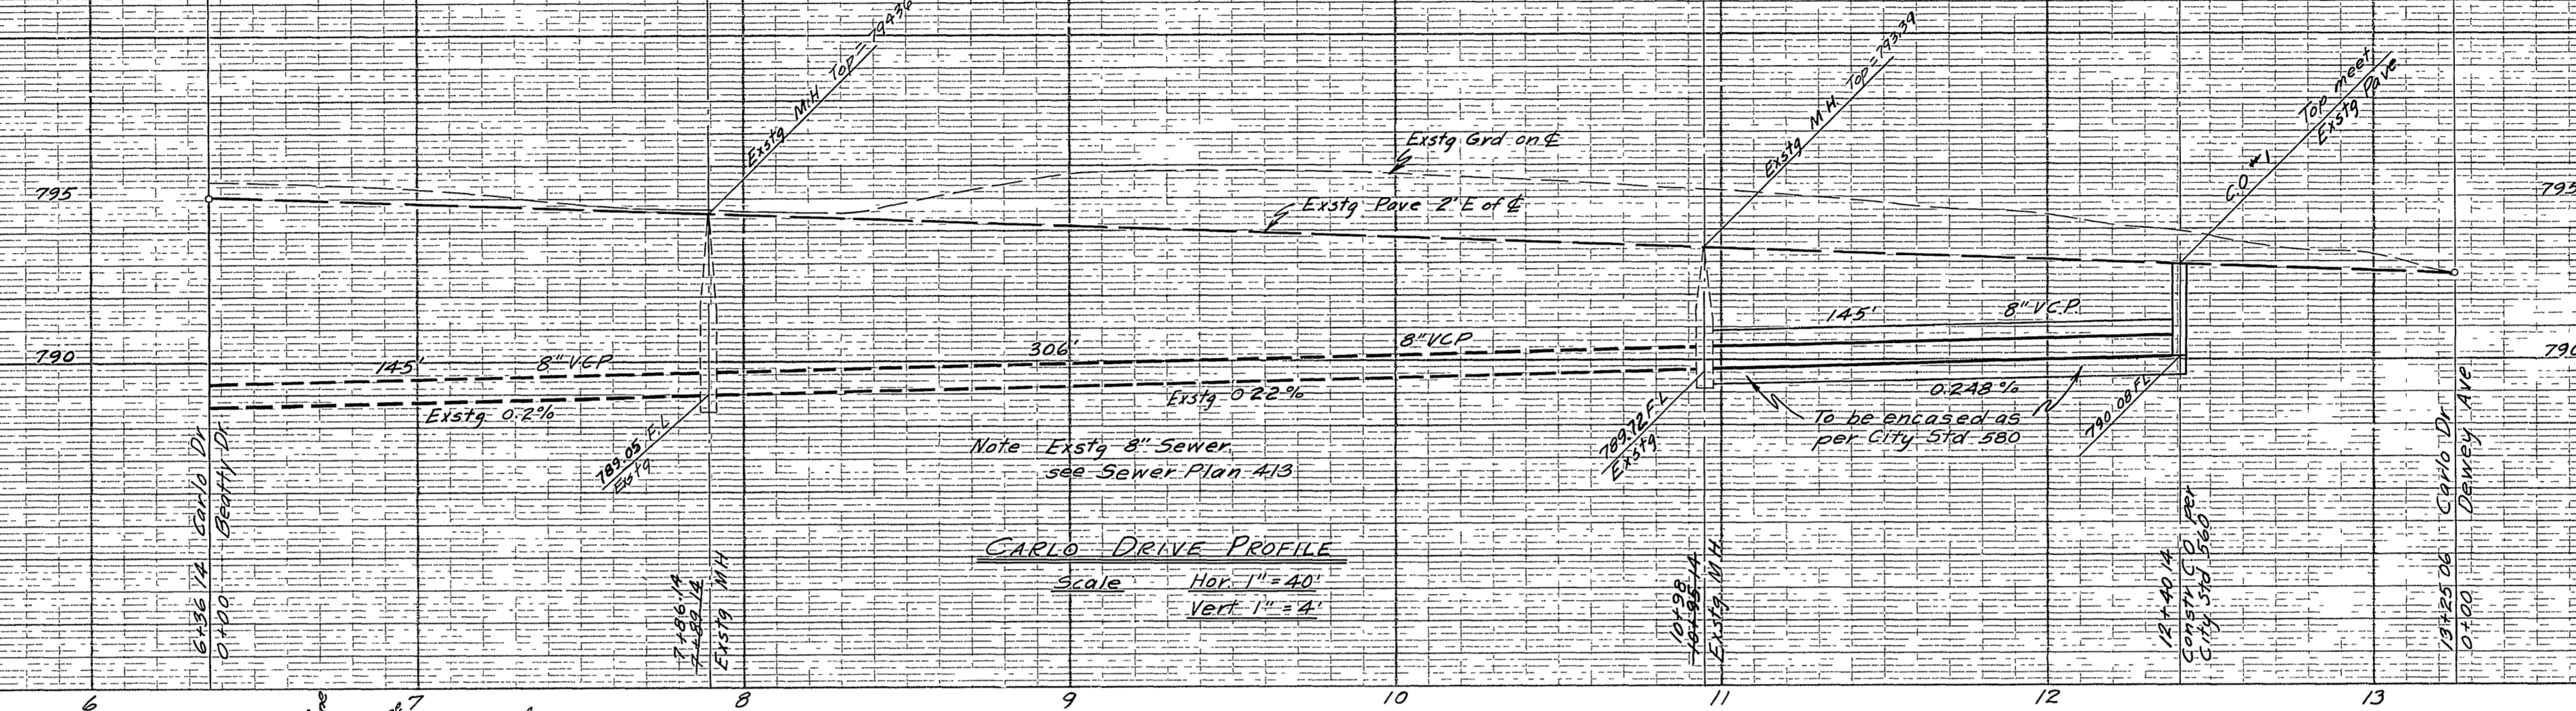 Exstg M.H. Top = 794.36
Exstg M.H. Top = 793.39
C.O. #1 Top meet
Exstg Pave.
Exstg Grd on ℄
795
795
Exstg Pave 2' E of ℄
145' 8" V.C.P.
790
790
145' 8" VCP
306' 8" VCP
Exstg 0.2%
Exstg 0.22%
0.248%
To be encased as
per City Std 580
789.05 F.L.
Exstg
789.72 F.L.
Exstg
790.08 FL
Note Exstg 8" Sewer,
see Sewer Plan 413
CARLO DRIVE PROFILE
Scale Hor. 1" = 40'
Vert. 1" = 4'
6+36.14 Carlo Dr
0+00 Beatty Dr.
7+86.14
7+89.14
Exstg M.H.
10+98
10+95.14
Exstg M.H.
12+40.14
Constr C.O. per
City Std 560
13+25.06 Carlo Dr
0+00 Dewey Ave
6 7 8 9 10 11 12 13